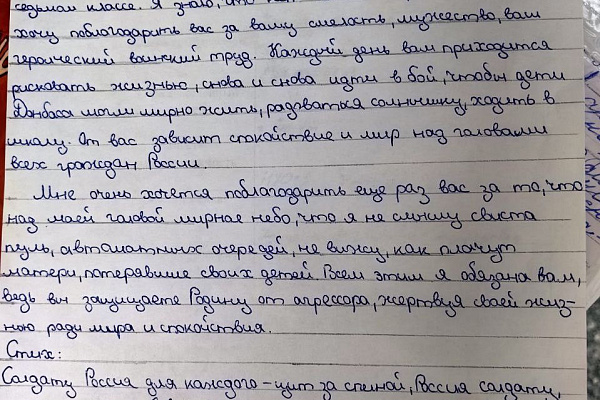 седьмом классе. Я знаю, что
хочу поблагодарить вас за вашу смелость, мужество, ваш
героический воинский труд. Каждый день вам приходится
рисковать жизнью, снова и снова идти в бой, чтобы дети
Донбаса могли мирно жить, радоваться солнышку, ходить в
школу. От вас зависит спокойствие и мир над головами
всех граждан России.
Мне очень хочется поблагодарить еще раз вас за то, что
над моей головой мирное небо, что я не слышу свиста
пуль, автоматных очередей, не вижу, как плачут
матери, потерявшие своих детей. Всем этим я обязана вам,
ведь вы защищаете Родину от агрессора, жертвуя своей жиз-
нью ради мира и спокойствия.
Стих:
Солдату Россия для каждого - щит за спиной, Россия солдату,